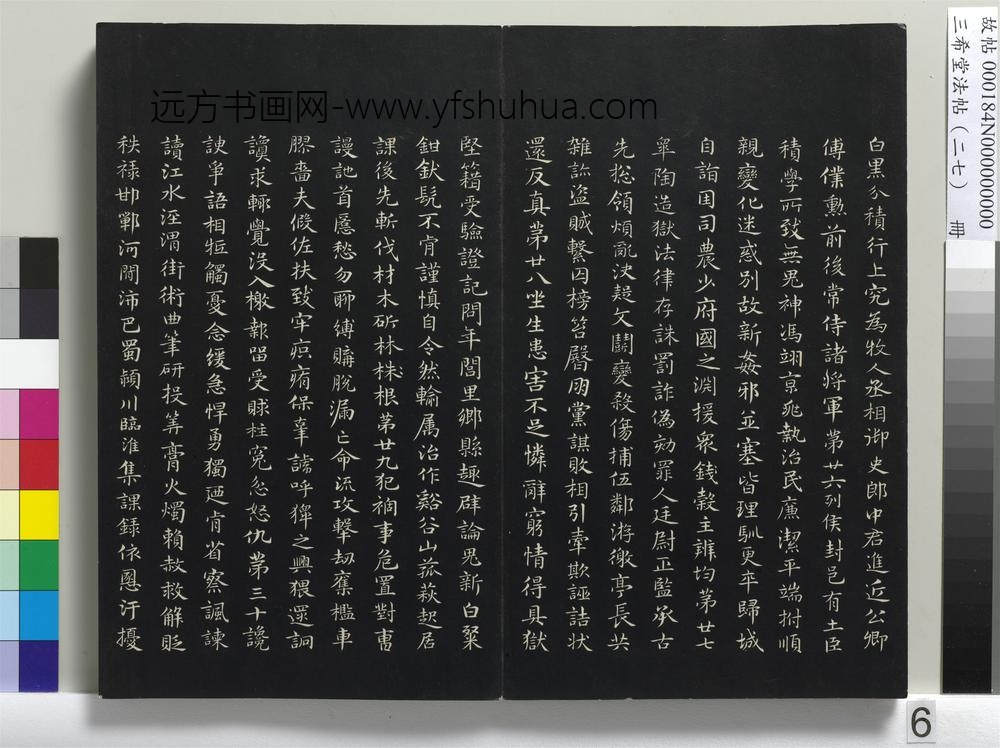 远方书画网-www.yfshuhua.com
故帖 000184N000000000
三希堂法帖(二七) 冊
白黑分積行上究為牧人丞相御史郎中君進近公卿
傅僕勳前後常侍諸將軍第廿六列侯封邑有土臣
積學所致無鬼神馮翊京兆執治民廉潔平端拊順
親變化迷惑別故新姦邪並塞皆理馴更卒歸城
自詣因司農少府國之淵援眾錢穀主辨均第廿七
皐陶造獄法律存誅罰詐偽劾罪人廷尉正監承古
先揔領煩亂決疑文鬪變殺傷捕伍鄰游徼亭長共
雜詠盜賊繫囚榜笞臋朋黨謀敗相引牽欺誣詰狀
還反真第廿八坐生患害不足憐辭窮情得具獄
堅籍受驗證記問年閭里鄉縣趣辟論鬼新白粲
鉗釱髡不肎謹慎自令然輸屬治作谿谷山菰萩起居
課後先斬伐材木斫林株根第廿九犯禍事危置對曹
謾訑首匿愁勿聊縛購脫漏亡命流攻擊劫奪檻車
膠嗇夫假佐扶致牢疻痏保辜謕呼獆之興猥還詗
讂求輆覺沒入檄報留受賕枉冤忿怒仇第三十讒
諛爭語相牴觸憂念緩急悍勇獨迺肯省察諷諫
讀江水涇渭街術曲筆研投筭膏火燭賴赦救解貶
秩祿邯鄲河閒沛巴蜀潁川臨淮集課錄依恩汙擾
6